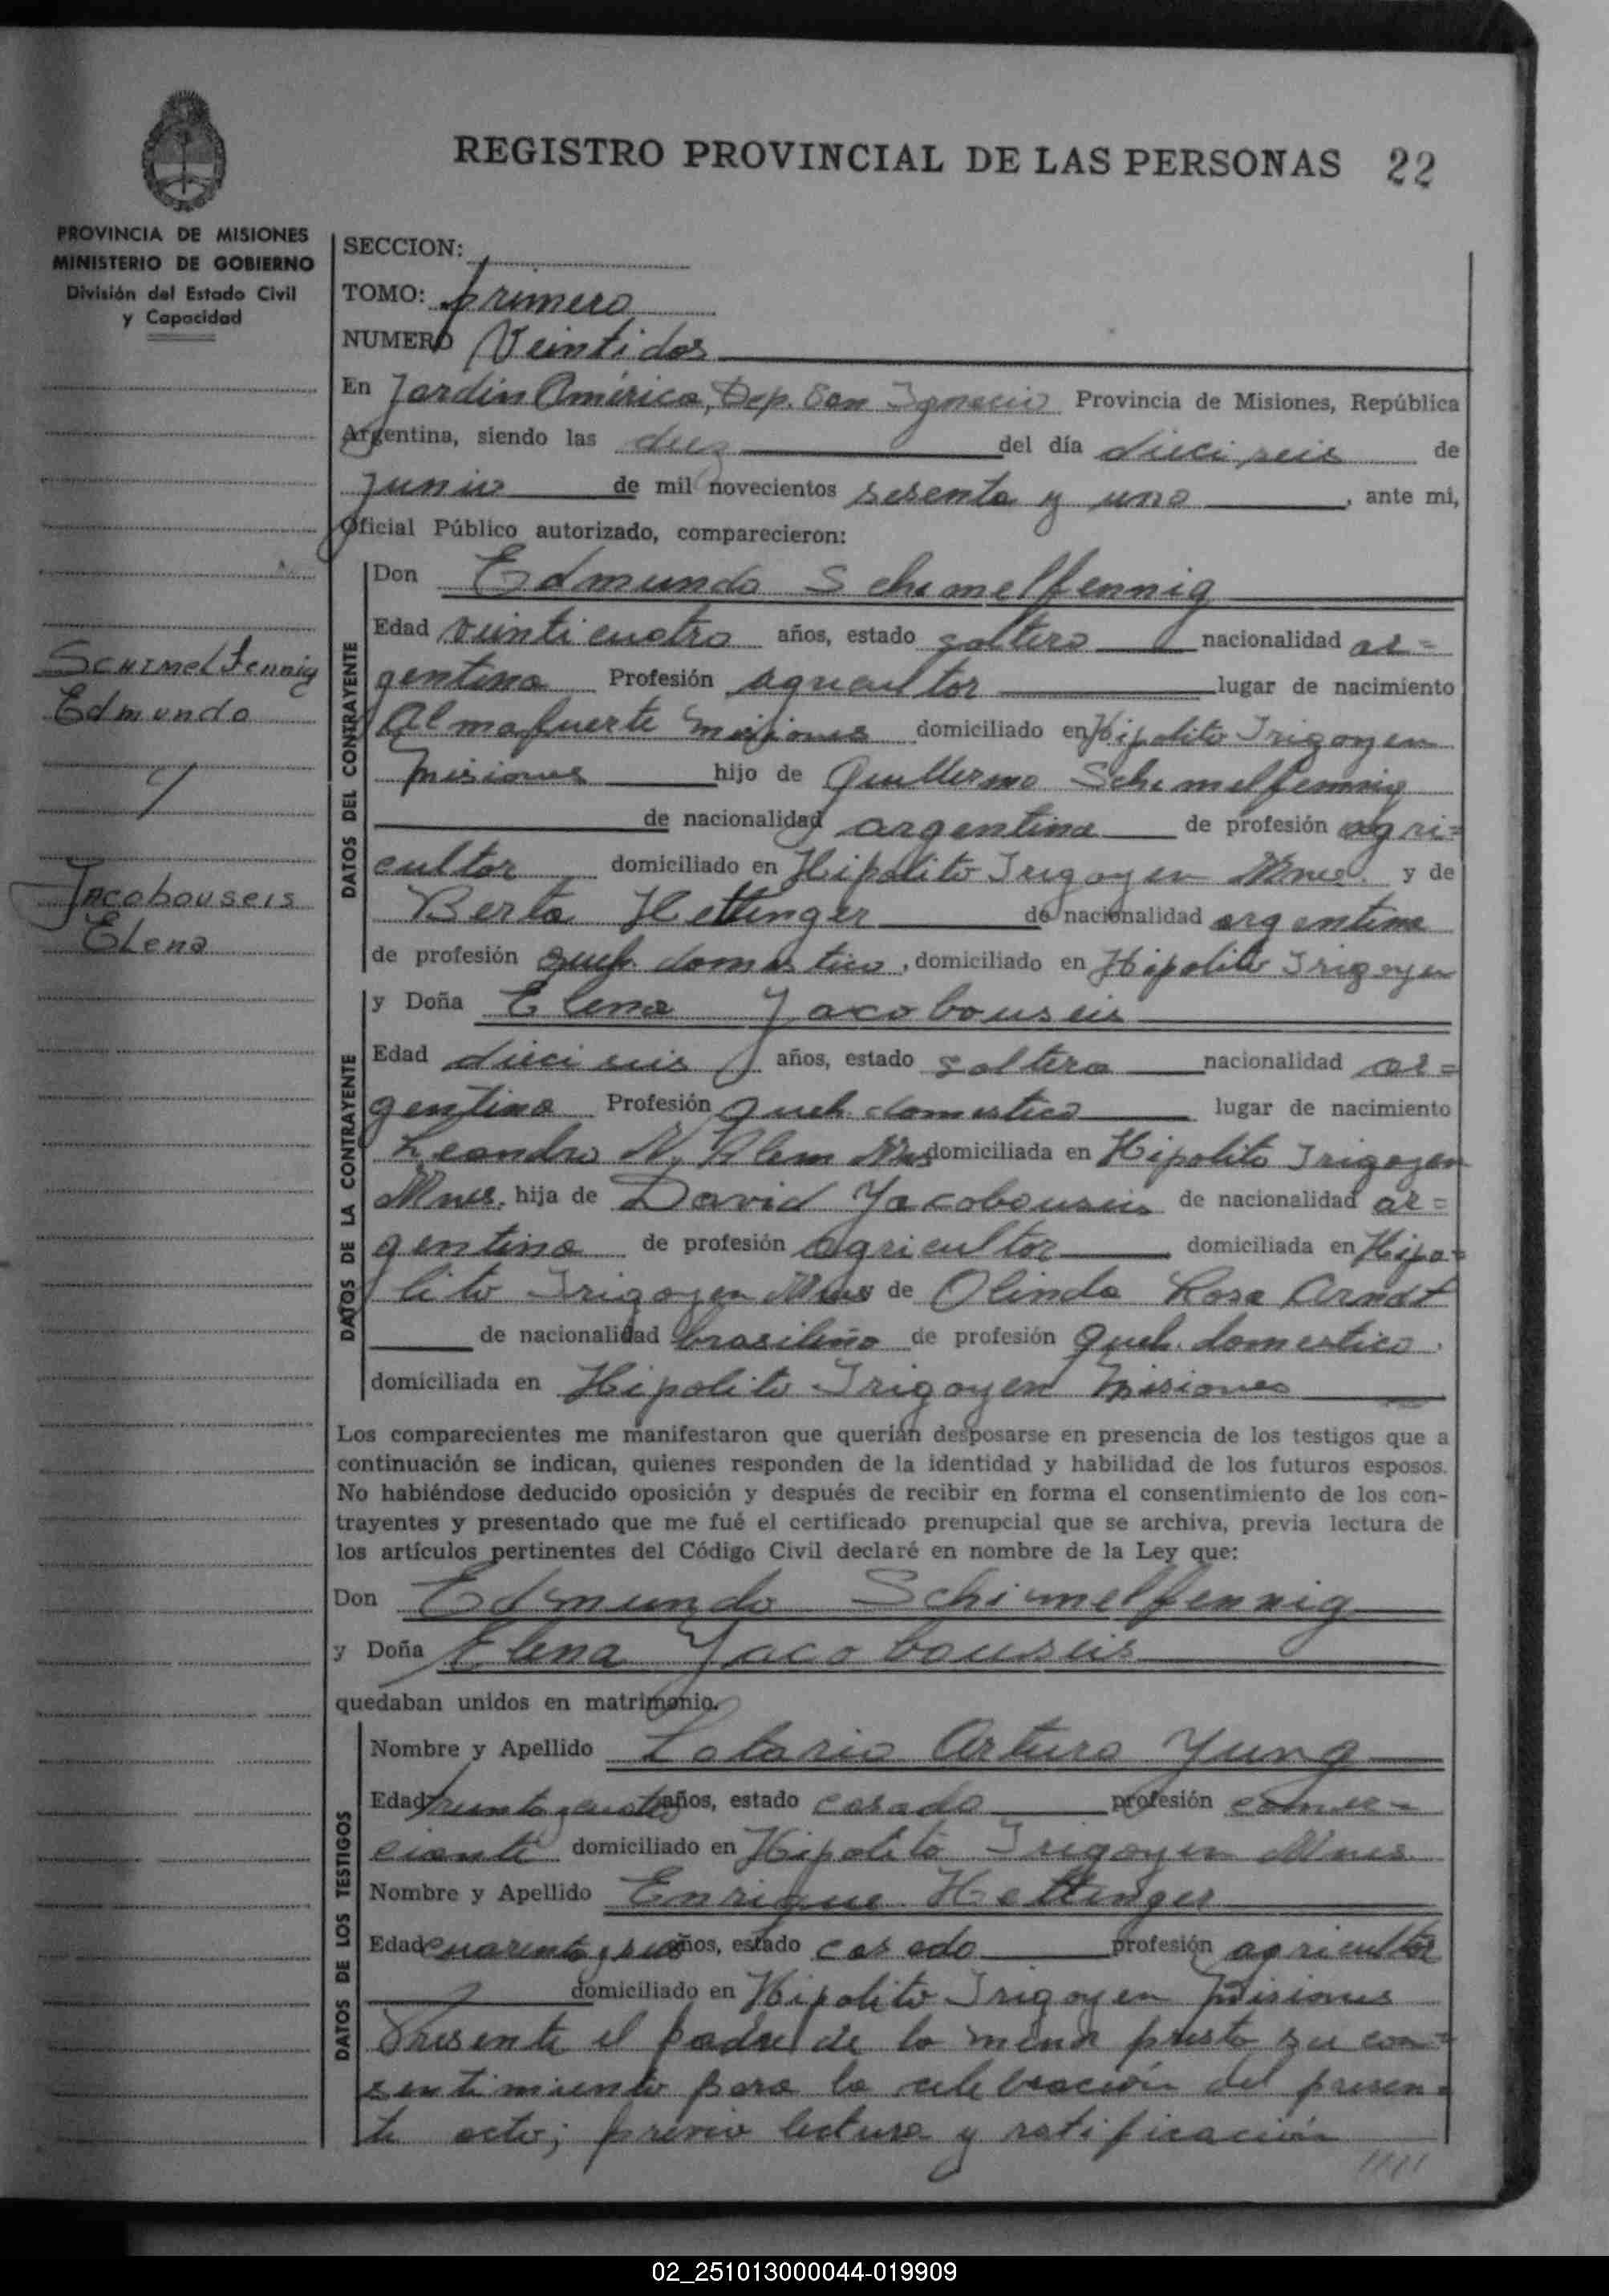 REGISTRO PROVINCIAL DE LAS PERSONAS 22
PROVINCIA DE MISIONES
MINISTERIO DE GOBIERNO
División del Estado Civil
y Capacidad
SECCION:
TOMO: primero
NUMERO Veintidos
En Jardin América, Dep. San Ignacio Provincia de Misiones, República
Argentina, siendo las diez del día dieciseis de
Junio de mil novecientos sesenta y uno, ante mi,
Oficial Público autorizado, comparecieron:
Schimelfennig
Edmundo
y
Jacobouseis
Elena
DATOS DEL CONTRAYENTE
Don Edmundo Schimelfennig
Edad veinticuatro años, estado soltero nacionalidad ar=
gentina Profesión agricultor lugar de nacimiento
Almafuerte Misiones domiciliado en Hipolito Irigoyen
Misiones hijo de Guillermo Schimelfennig
de nacionalidad argentina de profesión agri=
cultor domiciliado en Hipolito Irigoyen Mnes. y de
Berta Hettinger de nacionalidad argentina
de profesión queh. domestico, domiciliado en Hipolito Irigoyen
DATOS DE LA CONTRAYENTE
y Doña Elena Jacobouseis
Edad dieciseis años, estado soltera nacionalidad ar=
gentina Profesión queh. domestico lugar de nacimiento
Leandro N. Alem Mnes domiciliada en Hipolito Irigoyen
Mnes. hija de David Jacobouseis de nacionalidad ar=
gentina de profesión agricultor domiciliada en Hipo=
lito Irigoyen Mnes y de Olinda Rosa Arndt
de nacionalidad brasileña de profesión queh. domestico.
domiciliada en Hipolito Irigoyen Misiones
Los comparecientes me manifestaron que querían desposarse en presencia de los testigos que a
continuación se indican, quienes responden de la identidad y habilidad de los futuros esposos.
No habiéndose deducido oposición y después de recibir en forma el consentimiento de los con-
trayentes y presentado que me fué el certificado prenupcial que se archiva, previa lectura de
los artículos pertinentes del Código Civil declaré en nombre de la Ley que:
Don Edmundo Schimelfennig
y Doña Elena Jacobouseis
quedaban unidos en matrimonio.
DATOS DE LOS TESTIGOS
Nombre y Apellido Lotario Arturo Yung
Edad treinta y cuatro años, estado casado profesión comer=
ciante domiciliado en Hipolito Irigoyen Mnes.
Nombre y Apellido Enrique Hettinger
Edad cuarenta y años, estado casado profesión agricultor
domiciliado en Hipolito Irigoyen Misiones
Presente el padre de la menor presta su con=
sentimiento para la celebración del presen=
te acto; previa lectura y ratificación
////
02_251013000044-019909